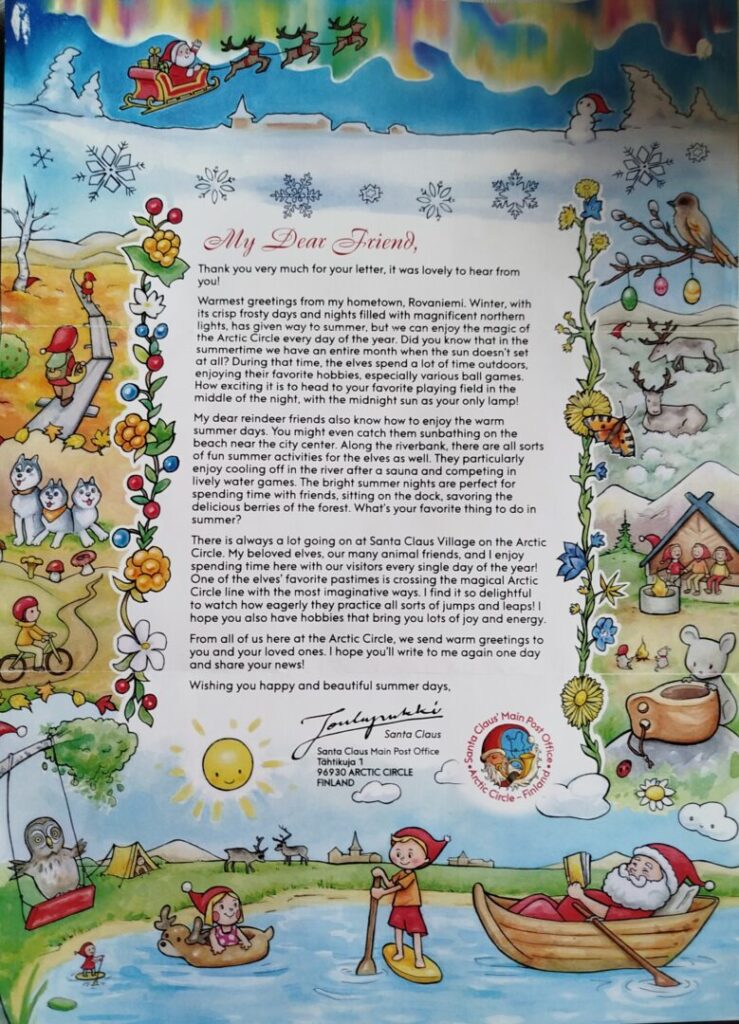 My Dear Friend,
Thank you very much for your letter, it was lovely to hear from
you!
Warmest greetings from my hometown, Rovaniemi. Winter, with
its crisp frosty days and nights filled with magnificent northern
lights, has given way to summer, but we can enjoy the magic of
the Arctic Circle every day of the year. Did you know that in the
summertime we have an entire month when the sun doesn't set
at all? During that time, the elves spend a lot of time outdoors,
enjoying their favorite hobbies, especially various ball games.
How exciting it is to head to your favorite playing field in the
middle of the night, with the midnight sun as your only lamp!
My dear reindeer friends also know how to enjoy the warm
summer days. You might even catch them sunbathing on the
beach near the city center. Along the riverbank, there are all sorts
of fun summer activities for the elves as well. They particularly
enjoy cooling off in the river after a sauna and competing in
lively water games. The bright summer nights are perfect for
spending time with friends, sitting on the dock, savoring the
delicious berries of the forest. What's your favorite thing to do in
summer?
There is always a lot going on at Santa Claus Village on the Arctic
Circle. My beloved elves, our many animal friends, and I enjoy
spending time here with our visitors every single day of the year!
One of the elves' favorite pastimes is crossing the magical Arctic
Circle line with the most imaginative ways. I find it so delightful
to watch how eagerly they practice all sorts of jumps and leaps! I
hope you also have hobbies that bring you lots of joy and energy.
From all of us here at the Arctic Circle, we send warm greetings to
you and your loved ones. I hope you'll write to me again one day
and share your news!
Wishing you happy and beautiful summer days,
Joulupukki
Santa Claus
Santa Claus Main Post Office
Tähtikuja 1
96930 ARCTIC CIRCLE
FINLAND
Santa Claus' Main Post Office
• Arctic Circle - Finland •